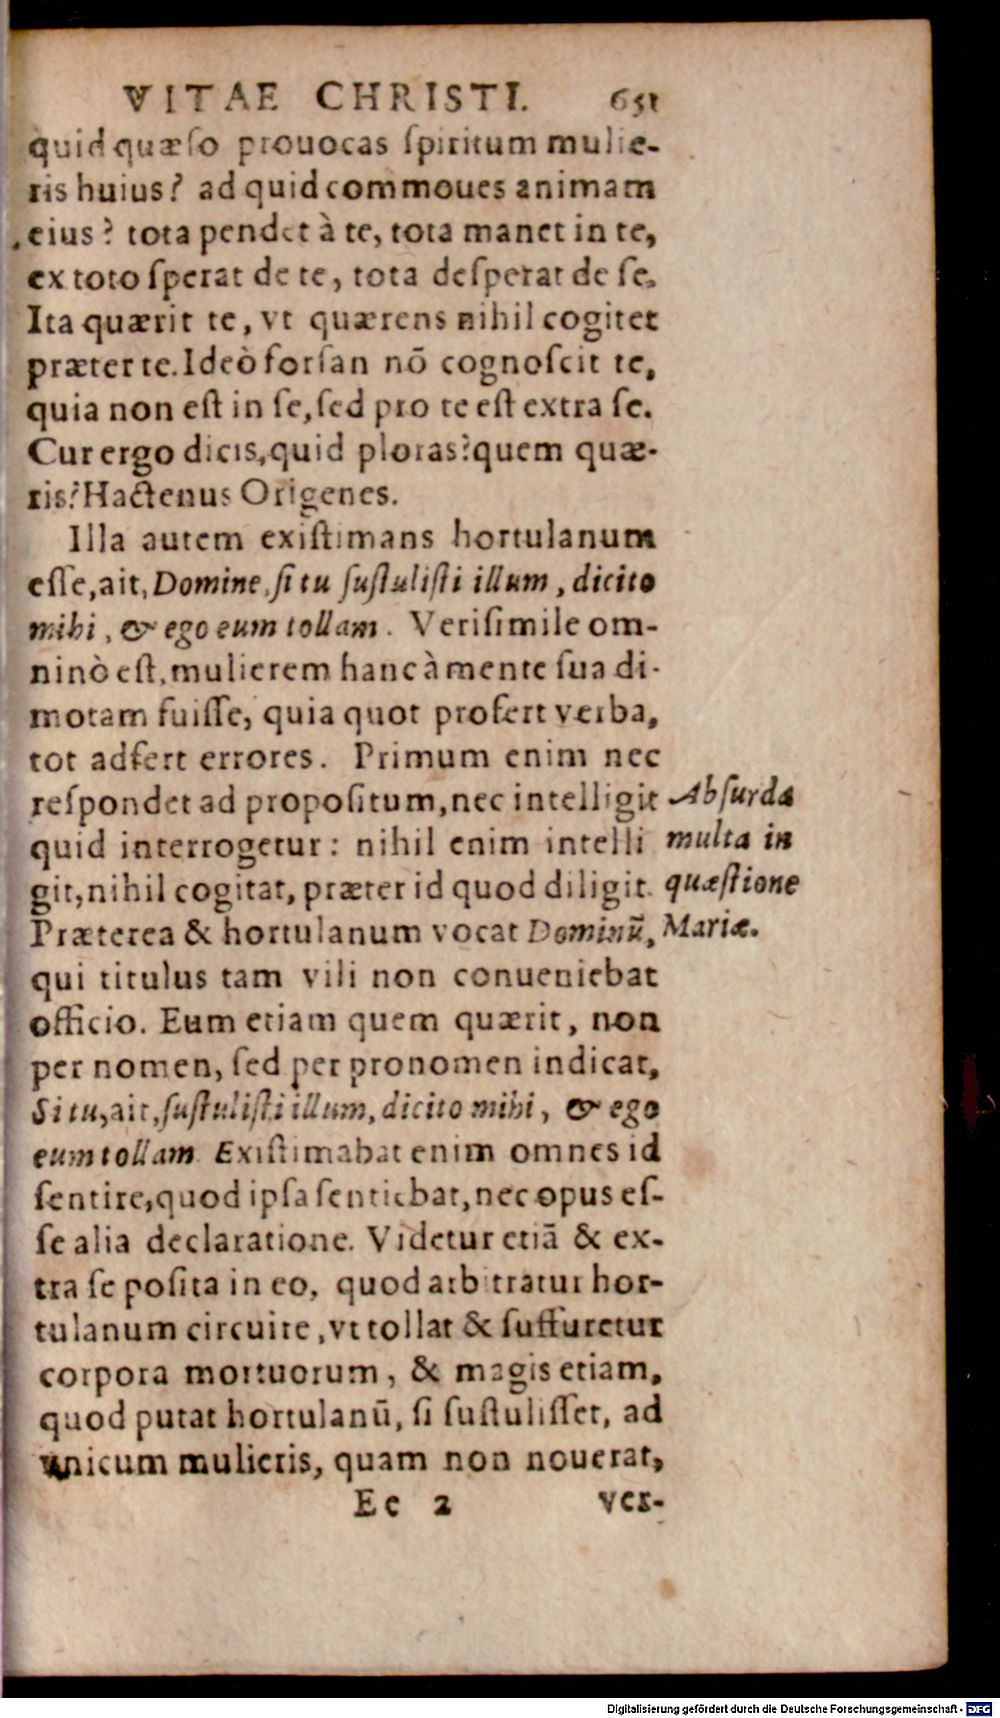 VITAE CHRISTI. 651
quid quæso prouocas spiritum mulie-
ris huius? ad quid commoues animam
eius? tota pendet à te, tota manet in te,
ex toto sperat de te, tota desperat de se.
Ita quærit te, vt quærens nihil cogitet
præter te. Ideò forsan nō cognoscit te,
quia non est in se, sed pro te est extra se.
Cur ergo dicis, quid ploras? quem quæ-
ris? Hactenus Origenes.
Illa autem existimans hortulanum
esse, ait, Domine, si tu sustulisti illum, dicito
mihi, & ego eum tollam. Verisimile om-
ninò est, mulierem hanc à mente sua di-
motam fuisse, quia quot profert verba,
tot adfert errores. Primum enim nec
respondet ad propositum, nec intelligit
quid interrogetur: nihil enim intelli
git, nihil cogitat, præter id quod diligit.
Præterea & hortulanum vocat Dominū,
qui titulus tam vili non conueniebat
officio. Eum etiam quem quærit, non
per nomen, sed per pronomen indicat,
Si tu, ait, sustulisti illum, dicito mihi, & ego
eum tollam. Existimabat enim omnes id
sentire, quod ipsa sentiebat, nec opus es-
se alia declaratione. Videtur etiā & ex-
tra se posita in eo, quod arbitratur hor-
tulanum circuire, vt tollat & suffuretur
corpora mortuorum, & magis etiam,
quod putat hortulanū, si sustulisset, ad
vnicum mulieris, quam non nouerat,
Ee 2 ver-
Absurda
multa in
quæstione
Mariæ.
Digitalisierung gefördert durch die Deutsche Forschungsgemeinschaft - DFG